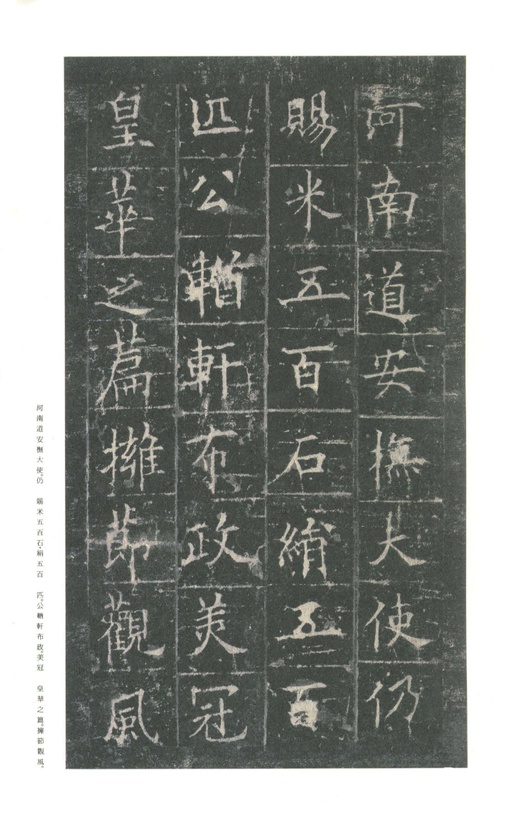 河南道安撫大使仍
賜米五百石絹五百
匹公輶軒布政美冠
皇華之篇擁節觀風
河南道安撫大使。仍 賜米五百石。絹五百 匹。公輶軒布政。美冠 皇華之篇。擁節觀風。